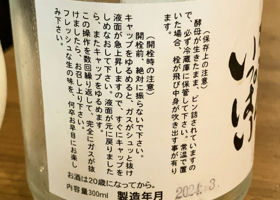 (保存上の注意)
酵母が生きたまま、ビン詰されていますの
で、必ず冷蔵庫に保管して下さい。常温で置
いた場合、栓が飛び中身が吹き出す事が有り
ます。
(開栓時の注意)
開栓前、絶対に振らないで下さい。
キャップをゆるめると、ガスがシュッと抜け
液面が急上昇しますので、すぐにキャップを
しめなおして下さい。液面が元に戻りました
ら、またキャップをゆるめます。
この操作を数回繰り返して、完全にガスが抜
けましたら、お召し上り下さい。
フレッシュな生の味を、何卒お早目にお楽し
み下さい。
お酒は20歳になってから。
内容量300ml
製造年月
2024. 3.